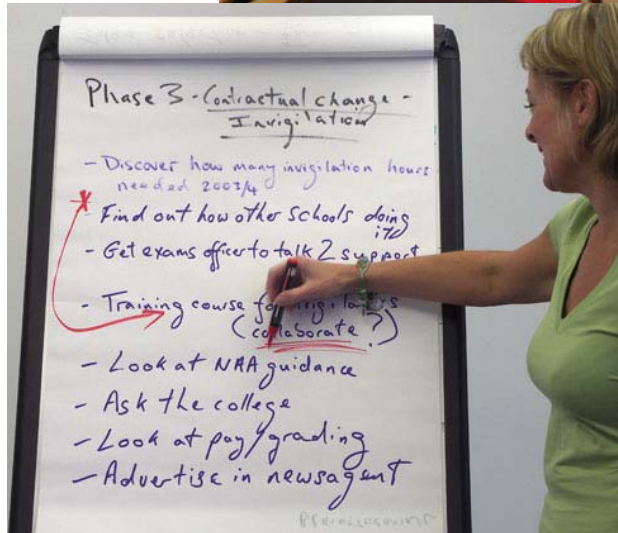 Phase 3 - Contractual change -
Invigilation
- Discover how many invigilation hours
needed 2003/4
- Find out how other schools doing
it?
- Get exams officer to talk 2 support
- Training course for invigilators
(collaborate?)
- Look at NAA guidance
- Ask the college
- Look at pay/grading
- Advertise in newsagent